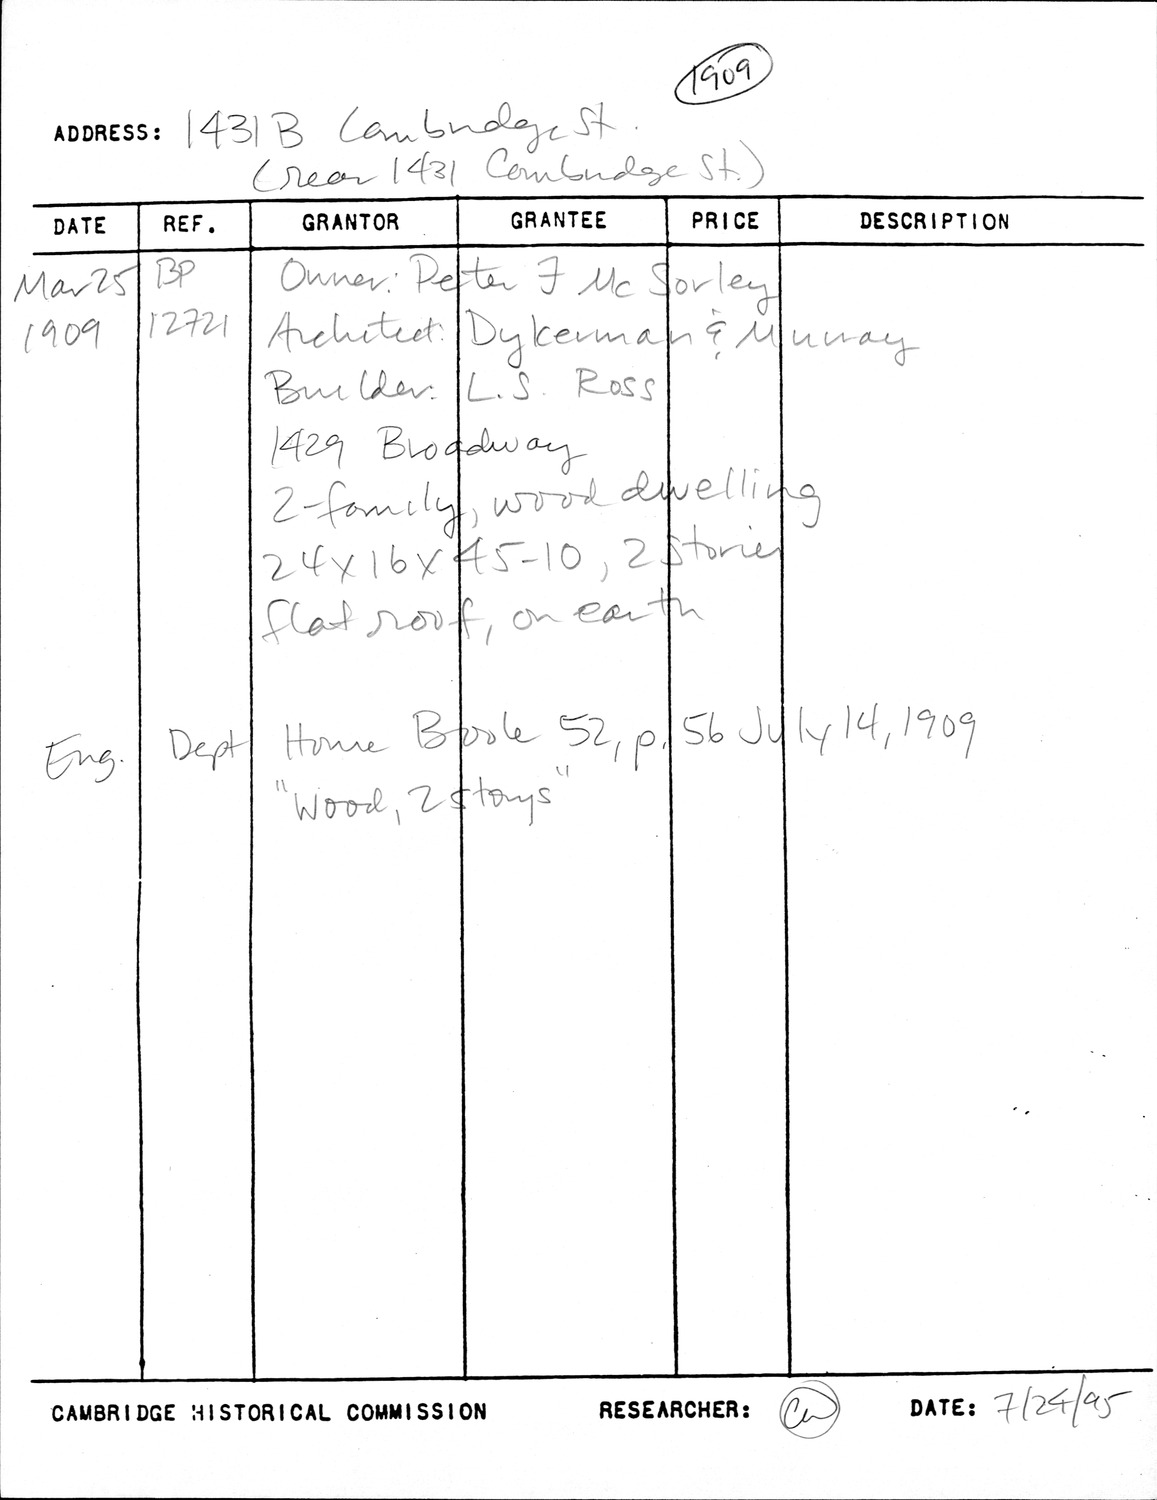 1909
ADDRESS: 1431B Cambridge St.
(rear 1431 Cambridge St.)
DATE REF. GRANTOR GRANTEE PRICE DESCRIPTION
Mar 25 BP Owner: Peter F McSorley
1909 12721 Architect: Dykerman & Murray
Builder: L.S. Ross
1429 Broadway
2-family, wood dwelling
24x16x45-10, 2 stories
flat roof, on earth
Eng. Dept House Book 52, p. 56 July 14, 1909
"Wood, 2 storys"
CAMBRIDGE HISTORICAL COMMISSION RESEARCHER: DATE: 7/24/95